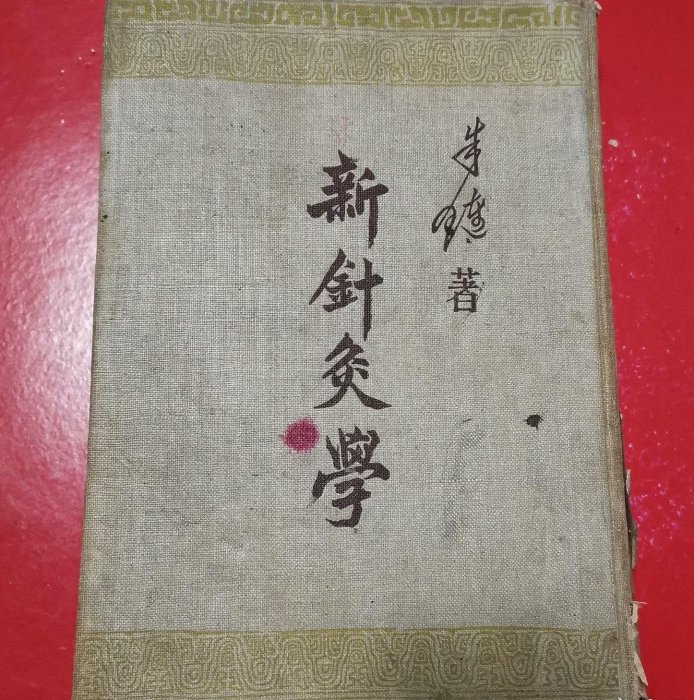 朱璉著
新針灸學